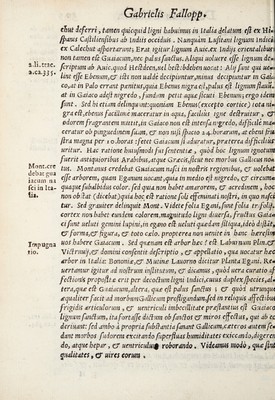 Gabrielis Fallopp.
ctus deferri, tamen quicquid ligni habuimus in Italia delatum est ex Hi-
spanis Castiliensibus ab Indis occiduis. Nunquam Lusitani lignum Indicū
ex Calechut asportarunt, Erat igitur lignum Auic. ex Indijs orientalibus
non tamen est Guaiacum, nec palus sanctus. Aliqui
scriptum ab Auic. quod
line esse Ebenum, & isti non ualde decipiuntur, minus decipiuntur in Guaia-
co, at in Palo errant penitus, quia Ebenus nigra est, palus est lignum
at in Guaiaco adest nigredo, tandem petit quasi sicuti Ebenus, ergo idem
sunt. Sed hi etiam delinquunt, quoniam Ebenus (excepto cortice) tota ni-
gra est, ebenus facillime maceratur in aqua, facilius igne destruitur, &
odorem fragrantem mittit, at Guaiacum non est intensa nigredo, difficile ma-
ceratur ob pinguedinem suam, & non nisi spacio 24. horarum, at ebeni fru
sta magna per 10. horas: ferè Guaiacum est durum, praeterea difficilius
uritur. Hac ratione huiusmodi sententia, quòd hoc lignum ignotum
fuerit antiquioribus Arabibus, atque Graecis, sicut nec morbus Gallicus no-
tus. Montanus credidit Guaiacum nasci in nostris regionibus, & uolebat
esse arborem, quam Egenum uocant, quia in medio est nigredo, & circum-
quaque subalbidus color. sed quia non habet amarorem, & acredinem, hoc
non obstat (dicebat) quia hoc est ratione soli essentiati nostri, in quo nasci-
tur. Sed grauiter delinquit Mont. Videte folia Egani, sunt folia
cortex non habet eundem colorem, magnitudo ligni diuersa, fructus Guaia
ci sunt ueluti gemini lupini, in egano est ueluti quaedam siliqua, ideò distat,
& forma, & figura, & toto coelo. propterea non ueniat in hanc haeresim,
uos habere Guaiacum. Sed quaenam est arbor haec? est Laburnum Plin. &
Victruuij, & domini consentit descriptio, & appellatio, qua uocatur haec
arbor in Italia: Bononiae, & Mutinae Lauorno dicitur Planta Egani. Re-
uertamur igitur ad nostrum institutum, & dicamus, quòd uera curatio af-
fectionis propositae erit per decoctum ligni Indici, cuius duplex species, al-
tera, quae est Guaiacum, altera, quae est palus sanctus: & quòd utrumque
aequaliter facit ad morbum Gallicum profligandum, sed in reliquis affectibus
frigidis articulorum, & uentriculi imbecillitate praestantius est Guaiaco
lignum sanctum, ita fortasse dictum ob sanctos & miros effectus, qui ab eo
deriuant: sed ambo à propria substantia sanant Gallicum, caeteros autem fe-
dant morbos frigidos exicando superfluas humiditates exiccando, digeren-
do, atque hepar, & uentriculum roborando. Videamus modò, quae sint
qualitates, & uires eorum.
2. li. trac.
2. ca. 335.
Mont. cre
debat gua
iacum na
sci in Ita-
lia.
Impugna
tio.